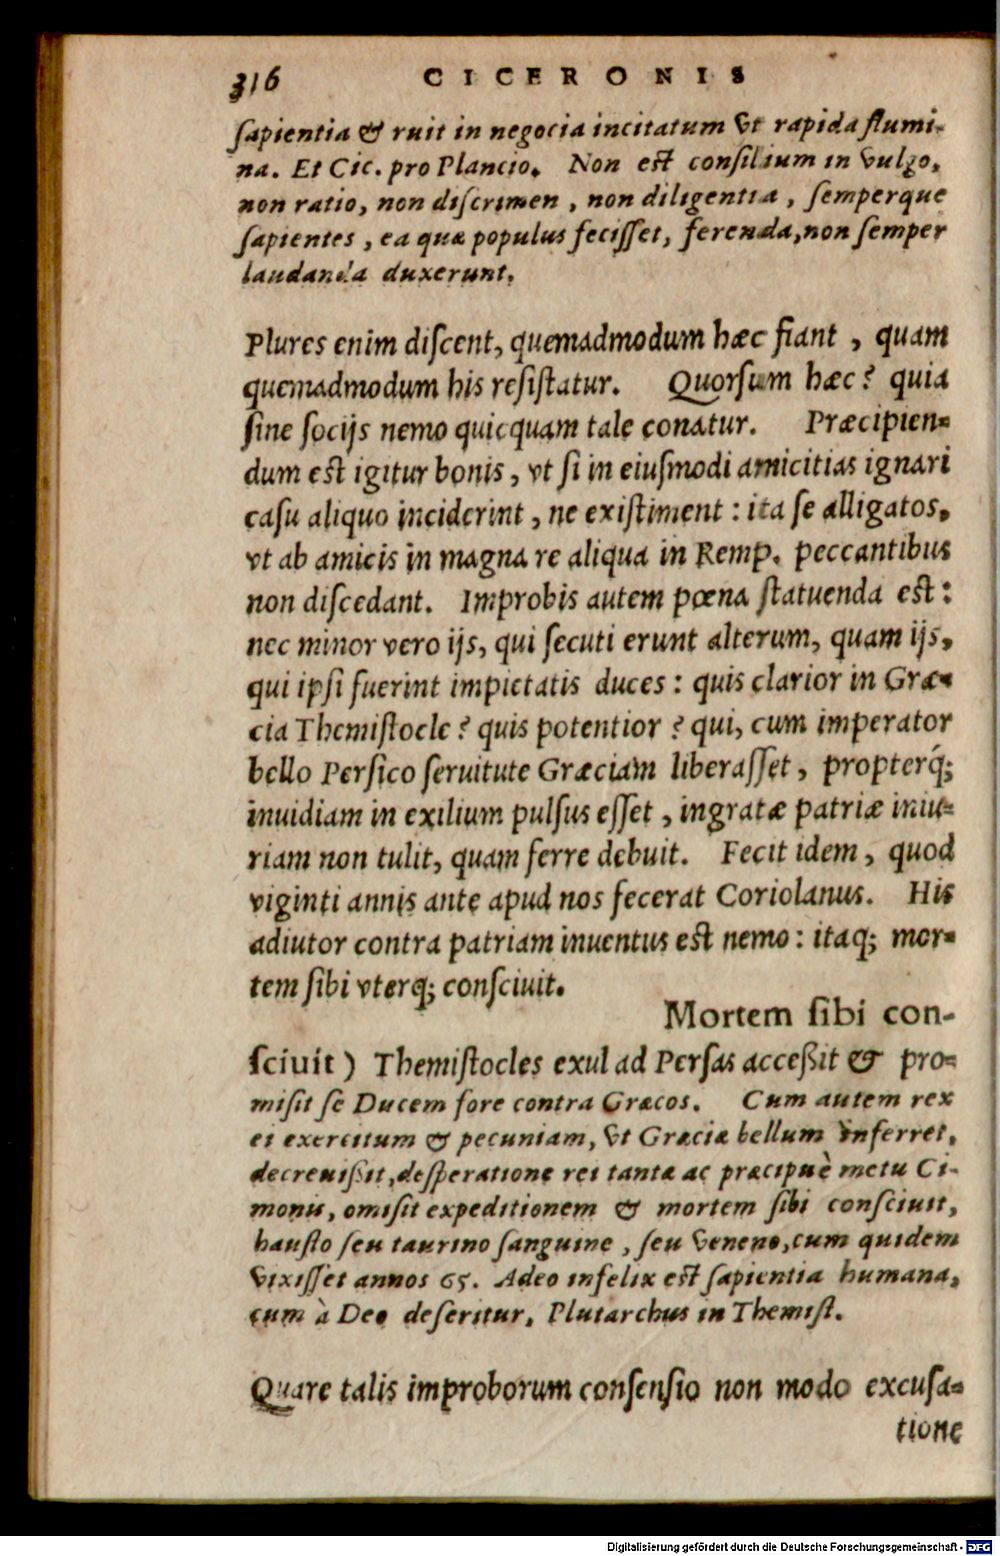 316 CICERONIS
ſapientia & ruit in negocia incitatum vt rapida flumi-
na. Et Cic. pro Plancio. Non eſt conſilium in vulgo,
non ratio, non diſcrimen, non diligentia, ſemperque
ſapientes, ea quæ populus feciſſet, ferenda, non ſemper
laudanda duxerunt.
Plures enim diſcent, quemadmodum hæc fiant, quam
quemadmodum his reſiſtatur. Quorſum hæc? quia
ſine ſocijs nemo quicquam tale conatur. Præcipien-
dum eſt igitur bonis, vt ſi in eiuſmodi amicitias ignari
caſu aliquo inciderint, ne exiſtiment: ita ſe alligatos,
vt ab amicis in magna re aliqua in Remp. peccantibus
non diſcedant. Improbis autem pœna ſtatuenda eſt:
nec minor vero ijs, qui ſecuti erunt alterum, quam ijs,
qui ipſi fuerint impietatis duces: quis clarior in Græ-
cia Themiſtocle? quis potentior? qui, cum imperator
bello Perſico ſeruitute Græciam liberaſſet, propterq́;
inuidiam in exilium pulſus eſſet, ingratæ patriæ iniu-
riam non tulit, quam ferre debuit. Fecit idem, quod
viginti annis ante apud nos fecerat Coriolanus. His
adiutor contra patriam inuentus eſt nemo: itaq; mor-
tem ſibi vterq; conſciuit.
Mortem ſibi con-
ſciuit) Themiſtocles exul ad Perſas acceßit & pro-
miſit ſe Ducem fore contra Græcos. Cum autem rex
ei exercitum & pecuniam, vt Græciæ bellum inferret,
decreuißit, deſperatione rei tantæ ac præcipuè metu Ci-
monis, omiſit expeditionem & mortem ſibi conſciuit,
hauſto ſeu taurino ſanguine, ſeu veneno, cum quidem
vixiſſet annos 65. Adeo infelix eſt ſapientia humana,
cum à Deo deſeritur. Plutarchus in Themiſt.
Quare talis improborum conſenſio non modo excuſa-
tione
Digitalisierung gefördert durch die Deutsche Forschungsgemeinschaft - DFG